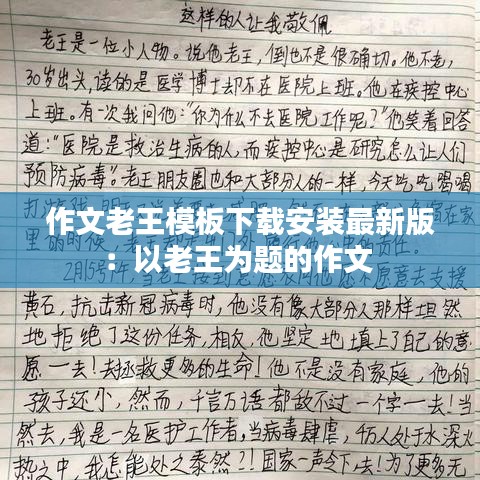 这样的人让我敬佩
老王是一位小人物。说他老王,倒也不是很确切。他不老,
30岁出头,读的是医学博士却不在医院上班。他在疾控中心
上班。有一次我问他:"你为什么不去医院工作呢?"他笑着回答
道:"医院是救治生病的人,而疾控中心是研究怎么让人们
预防病毒"。老王朋友圈也和大部分人的一样,今天吃吃喝喝
作文老王模板下载安装最新版
:以老王为题的作文
黄石,抗击新冠病毒时,他没有像大部分人那样坦然
地拒绝了这份任务,相反,他坚定地填上了自己的意
愿一去!去拯救更多的生命!他不是没有家庭,他的
孩子还小,然而,千言万语都敌不过一个字一去!当
然去,我是一名医护工作者,当病毒肆虐,千万人处于水深火
热之中,我怎能处之泰然?!国家一声令下,去!为了更多无